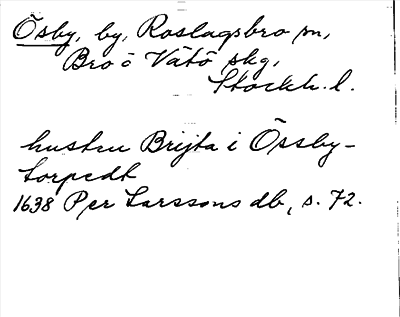 Ösby, by, Roslagsbro sn,
Bro o Vätö skg,
Stockh. l.
hustru Brijta i Össby-
torpedt
1638 Per Larssons db, s. 72.